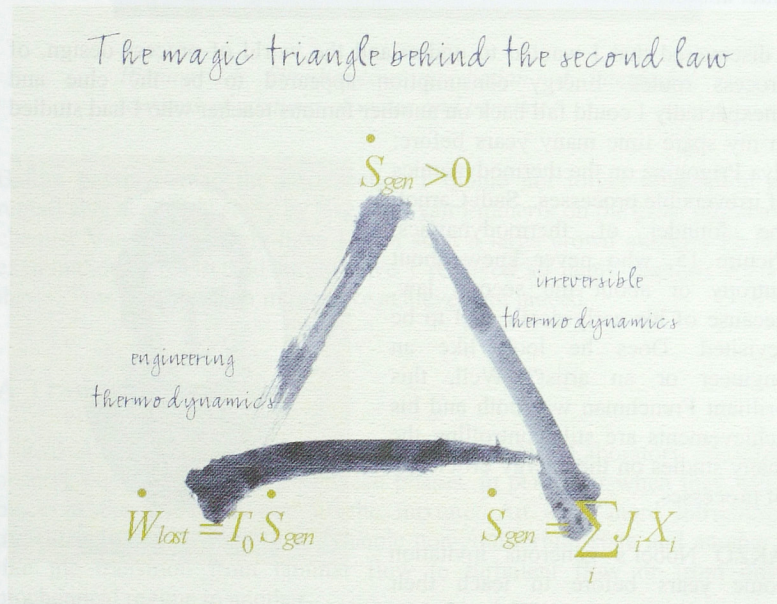 The magic triangle behind the second law
Ṡgen >0
irreversible
thermodynamics
engineering
thermodynamics
Ẇlost =T₀ Ṡgen
Ṡgen =∑JᵢXᵢ
i